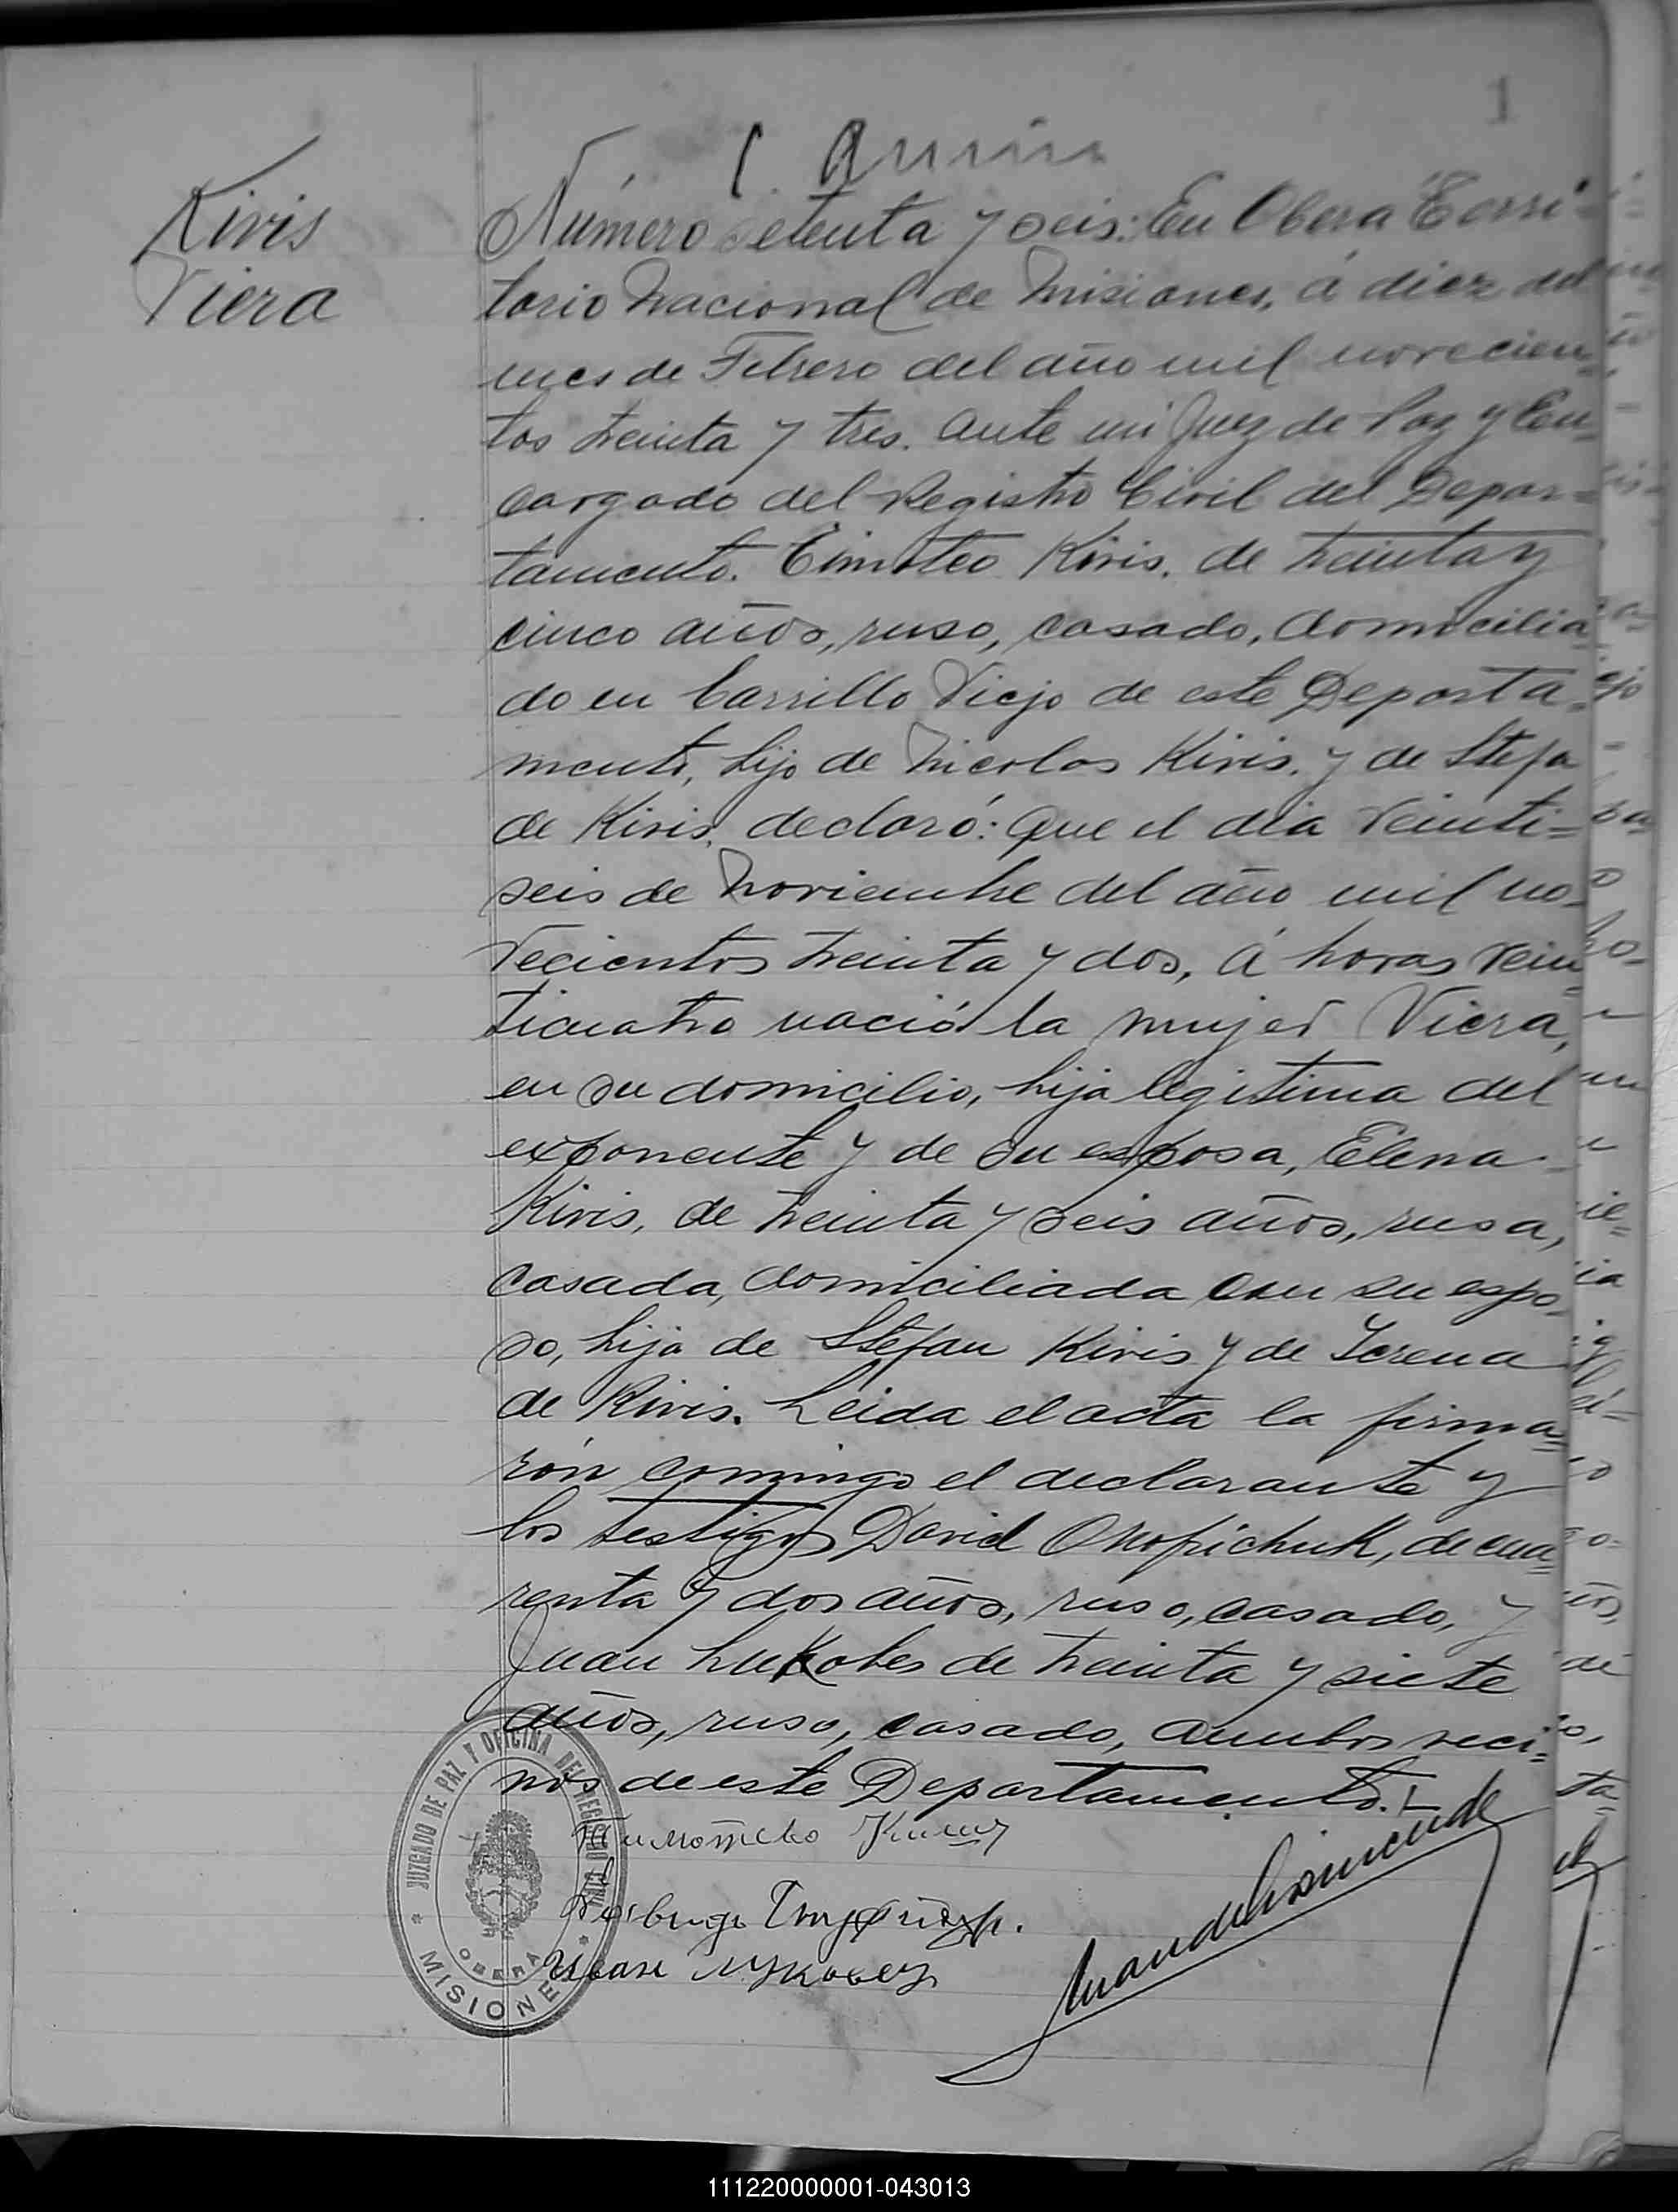 1
Kivis
Viera
Número setenta y seis: En Oberá Terri-
torio Nacional de Misiones, á diez del
mes de Febrero del año mil novecien-
tos treinta y tres. ante mi Juez de Paz y En-
cargado del Registro Civil del Depar=
tamento. Timoteo Kivis, de treinta y
cinco años, ruso, casado, domicilia
do en Carrillo Viejo de este Departa-
mento, hijo de Nicolas Kivis, y de Stefa
de Kivis, declaró: Que el dia veinti=
seis de Noviembre del año mil no-
vecientos treinta y dos, á horas vein=
ticuatro nació la mujer Viera,
en su domicilio, hija legitima del
exponente y de su esposa, Elena
Kivis, de treinta y seis años, rusa,
casada, domiciliada con su espo-
so, hija de Stefan Kivis y de Serena
de Kivis. Leida el acta la firma=
rón conmigo el declarante y
los testigos David Onofrichuk, de cua=
renta y dos años, ruso, casado, y
Juan Lukobes de treinta y siete
años, ruso, casado, ambos veci=
nos de este Departamento.
JUZGADO DE PAZ Y OFICINA DEL REGISTRO CIVIL
OBERA
MISIONES
Иван Луковец
111220000001-043013